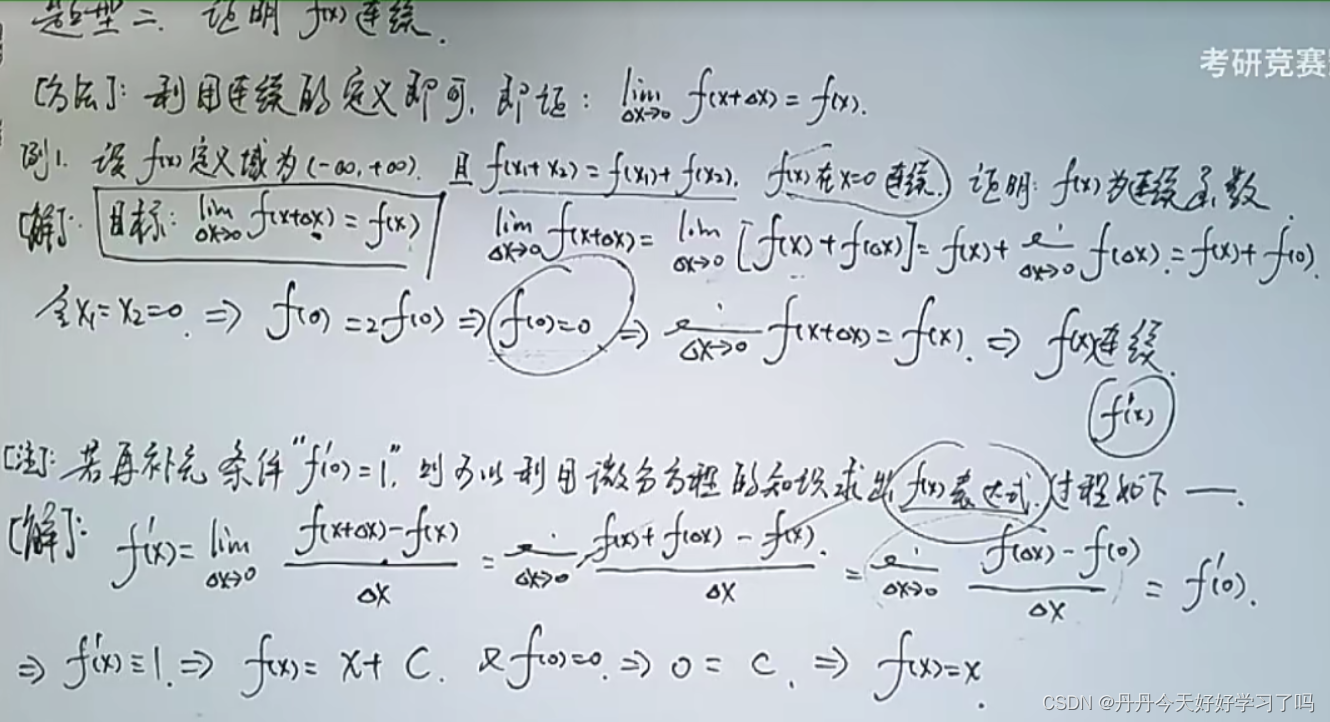 题型二. 证明 f(x) 连续.
考研竞赛
[方法]: 利用连续的定义即可, 即证: lim_{Δx→0} f(x+Δx) = f(x).
例1. 设 f(x) 定义域为 (-∞, +∞). 且 f(x₁+x₂) = f(x₁) + f(x₂), f(x) 在 x=0 连续. 证明: f(x) 为连续函数.
[解]: 目标: lim_{Δx→0} f(x+Δx) = f(x) lim_{Δx→0} f(x+Δx) = lim_{Δx→0} [f(x) + f(Δx)] = f(x) + lim_{Δx→0} f(Δx) = f(x) + f(0).
令 x₁ = x₂ = 0. ⇒ f(0) = 2f(0) ⇒ f(0) = 0 ⇒ lim_{Δx→0} f(x+Δx) = f(x). ⇒ f(x) 连续.
f'(x)
[注]: 若再补充条件 "f'(0) = 1", 则可以利用微分方程的知识求出 f(x) 表达式. 过程如下 —.
[解]: f'(x) = lim_{Δx→0} (f(x+Δx) - f(x))/Δx = lim_{Δx→0} (f(x) + f(Δx) - f(x))/Δx = lim_{Δx→0} (f(Δx) - f(0))/Δx = f'(0).
⇒ f'(x) ≡ 1. ⇒ f(x) = x + C. 又 f(0) = 0. ⇒ 0 = C. ⇒ f(x) = x.
CSDN @丹丹今天好好学习了吗